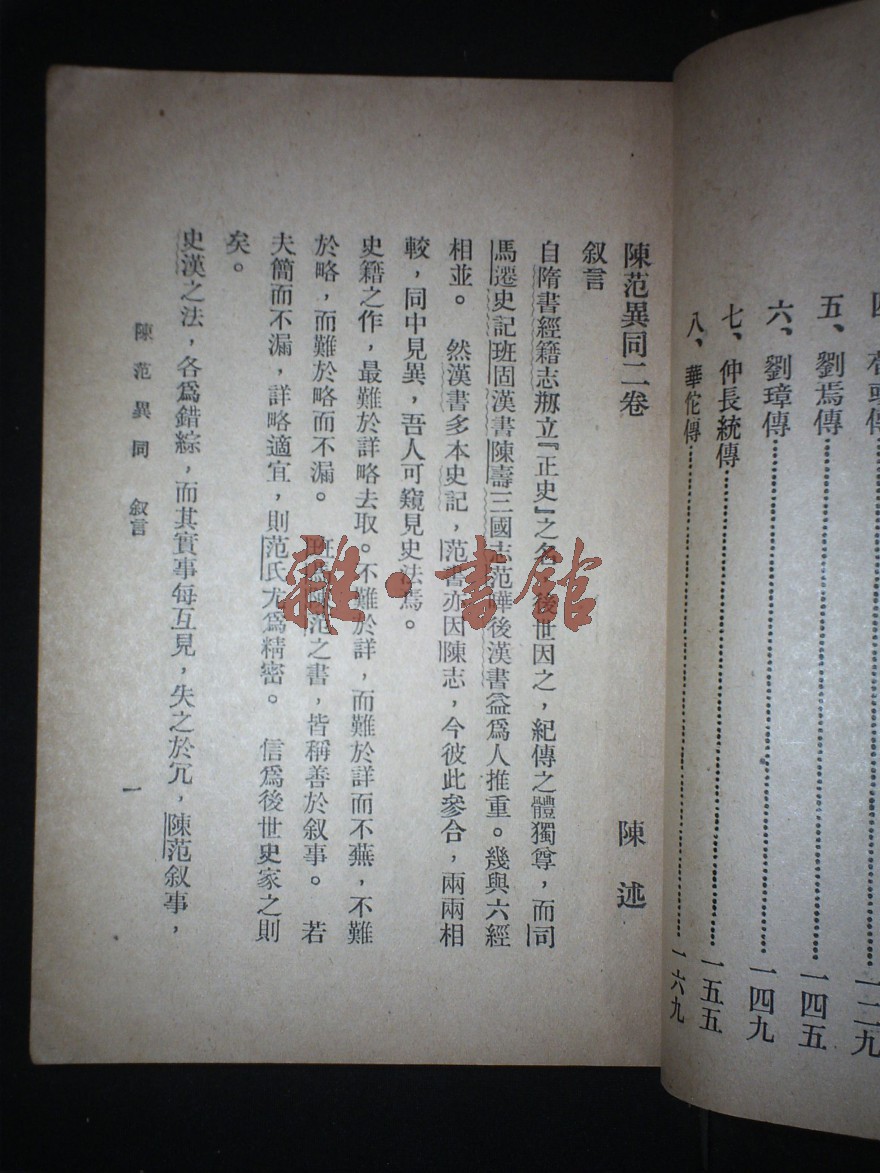 傳
五、劉焉傳……一四五
六、劉璋傳……一四九
七、仲長統傳……一五五
八、華佗傳……一六九
陳范異同二卷
陳述
叙言
自隋書經籍志刱立『正史』之名，後世因之，紀傳之體獨尊，而司
馬遷史記班固漢書陳壽三國志范曄後漢書益爲人推重。幾與六經
相並。然漢書多本史記，范書亦因陳志，今彼此參合，兩兩相
較，同中見異，吾人可窺見史法焉。
史籍之作，最難於詳略去取。不難於詳，而難於詳而不蕪，不難
於略，而難於略而不漏。班陳范之書，皆稱善於叙事。若
夫簡而不漏，詳略適宜，則范氏尤爲精密。信爲後世史家之則
矣。
史漢之法，各爲錯綜，而其實事每互見，失之於冗，陳范叙事，
陳范異同 叙言
一
雜·書館